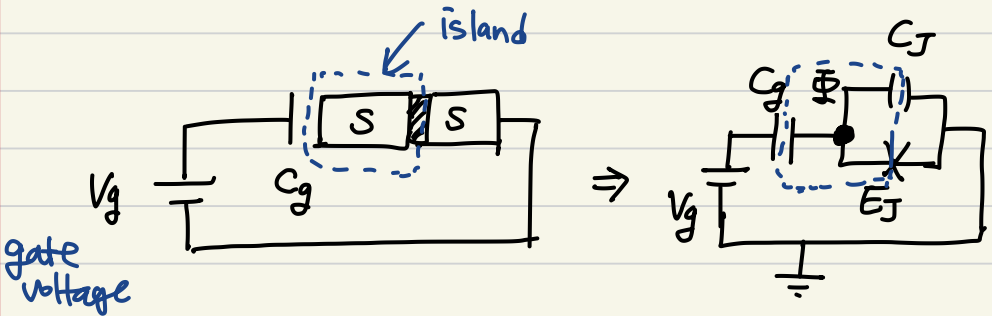 island
S
S
Cg
Vg
gate
voltage
⇒
CJ
Cg
Φ
EJ
Vg